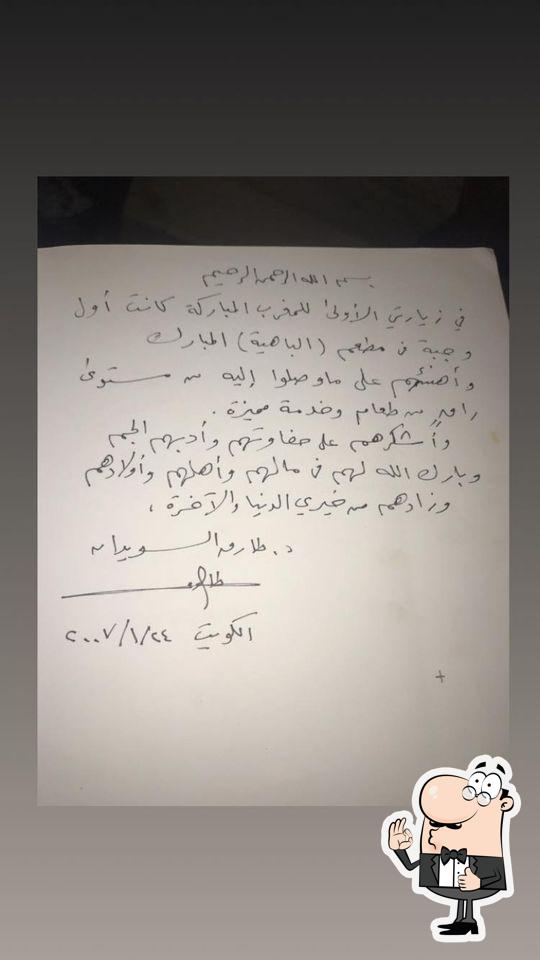 بسم الله الرحمن الرحيم
في زيارتي الأولى للمغرب المباركة كانت أول
وجبة في مطعم (الباهية) المبارك
وأهنئهم على ما وصلوا إليه من مستوى
راقٍ من طعام وخدمة مميزة .
وأشكرهم على حفاوتهم وأدبهم الجم
وبارك الله لهم في مالهم وأهلهم وأولادهم
وزادهم من خيري الدنيا والآخرة ،
د. طارق السويدان
طارق
الكويت ٢٠٠٧/١/٢٤